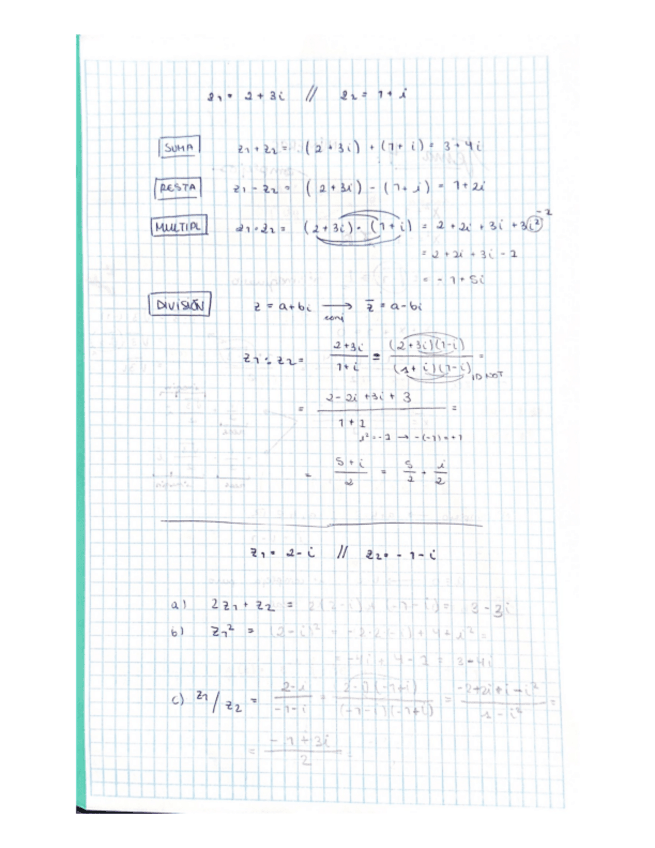 z1 = 2 + 3i // z2 = 1 + i
SUMA z1 + z2 = (2 + 3i) + (1 + i) = 3 + 4i
RESTA z1 - z2 = (2 + 3i) - (1 + i) = 1 + 2i
MULTIPL z1 · z2 = (2 + 3i) · (1 + i) = 2 + 2i + 3i + 3i²
= 2 + 2i + 3i - 3
= - 1 + 5i
DIVISIÓN z = a + bi → z̄ = a - bi
conj
z1 : z2 = (2 + 3i)/(1 + i) = (2 + 3i)(1 - i)/(1 + i)(1 - i) =
ID NOT
= (2 - 2i + 3i + 3)/(1 + 1) =
i² = -1 → -(-1) = +1
= (5 + i)/2 = 5/2 + i/2
z1 = 2 - i // z2 = - 1 - i
a) 2z1 + z2 = 2(2 - i) + (-1 - i) = 3 - 3i
b) z1² = (2 - i)² = - 2·2·i + 4 + i² =
= -4i + 4 - 1 = 3 - 4i
c) z1/z2 = (2 - i)/(-1 - i) = (2 - i)(-1 + i)/(-1 - i)(-1 + i) = (-2 + 2i + i - i²)/(1 - i²) =
= (-1 + 3i)/2